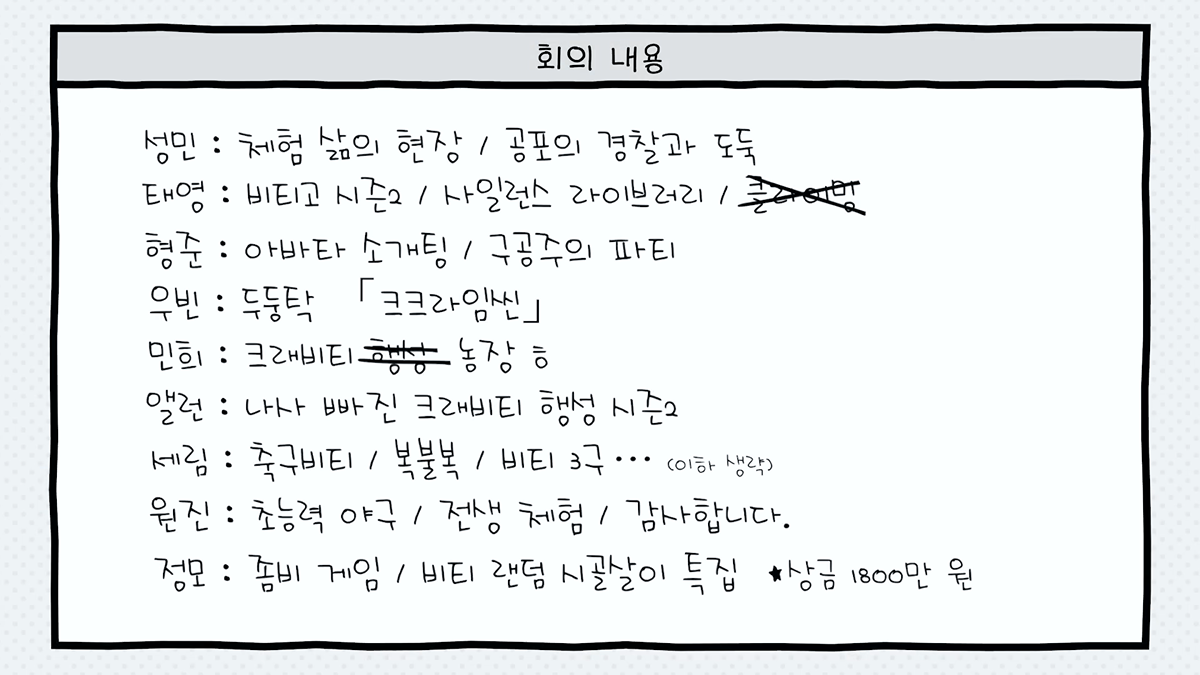 회의 내용
성민 : 체험 삶의 현장 / 공포의 경찰과 도둑
태영 : 비티고 시즌2 / 사일런스 라이브러리 / 클라이밍
형준 : 아바타 소개팅 / 구공주의 파티
우빈 : 두둥탁 「크크라임씬」
민희 : 크래비티 행성 농장 ㅎ
앨런 : 나사 빠진 크래비티 행성 시즌2
세림 : 축구비티 / 복불복 / 비티 3구 ··· (이하 생략)
원진 : 초능력 야구 / 전생 체험 / 감사합니다.
정모 : 좀비 게임 / 비티 랜덤 시골살이 특집 ★상금 1800만 원